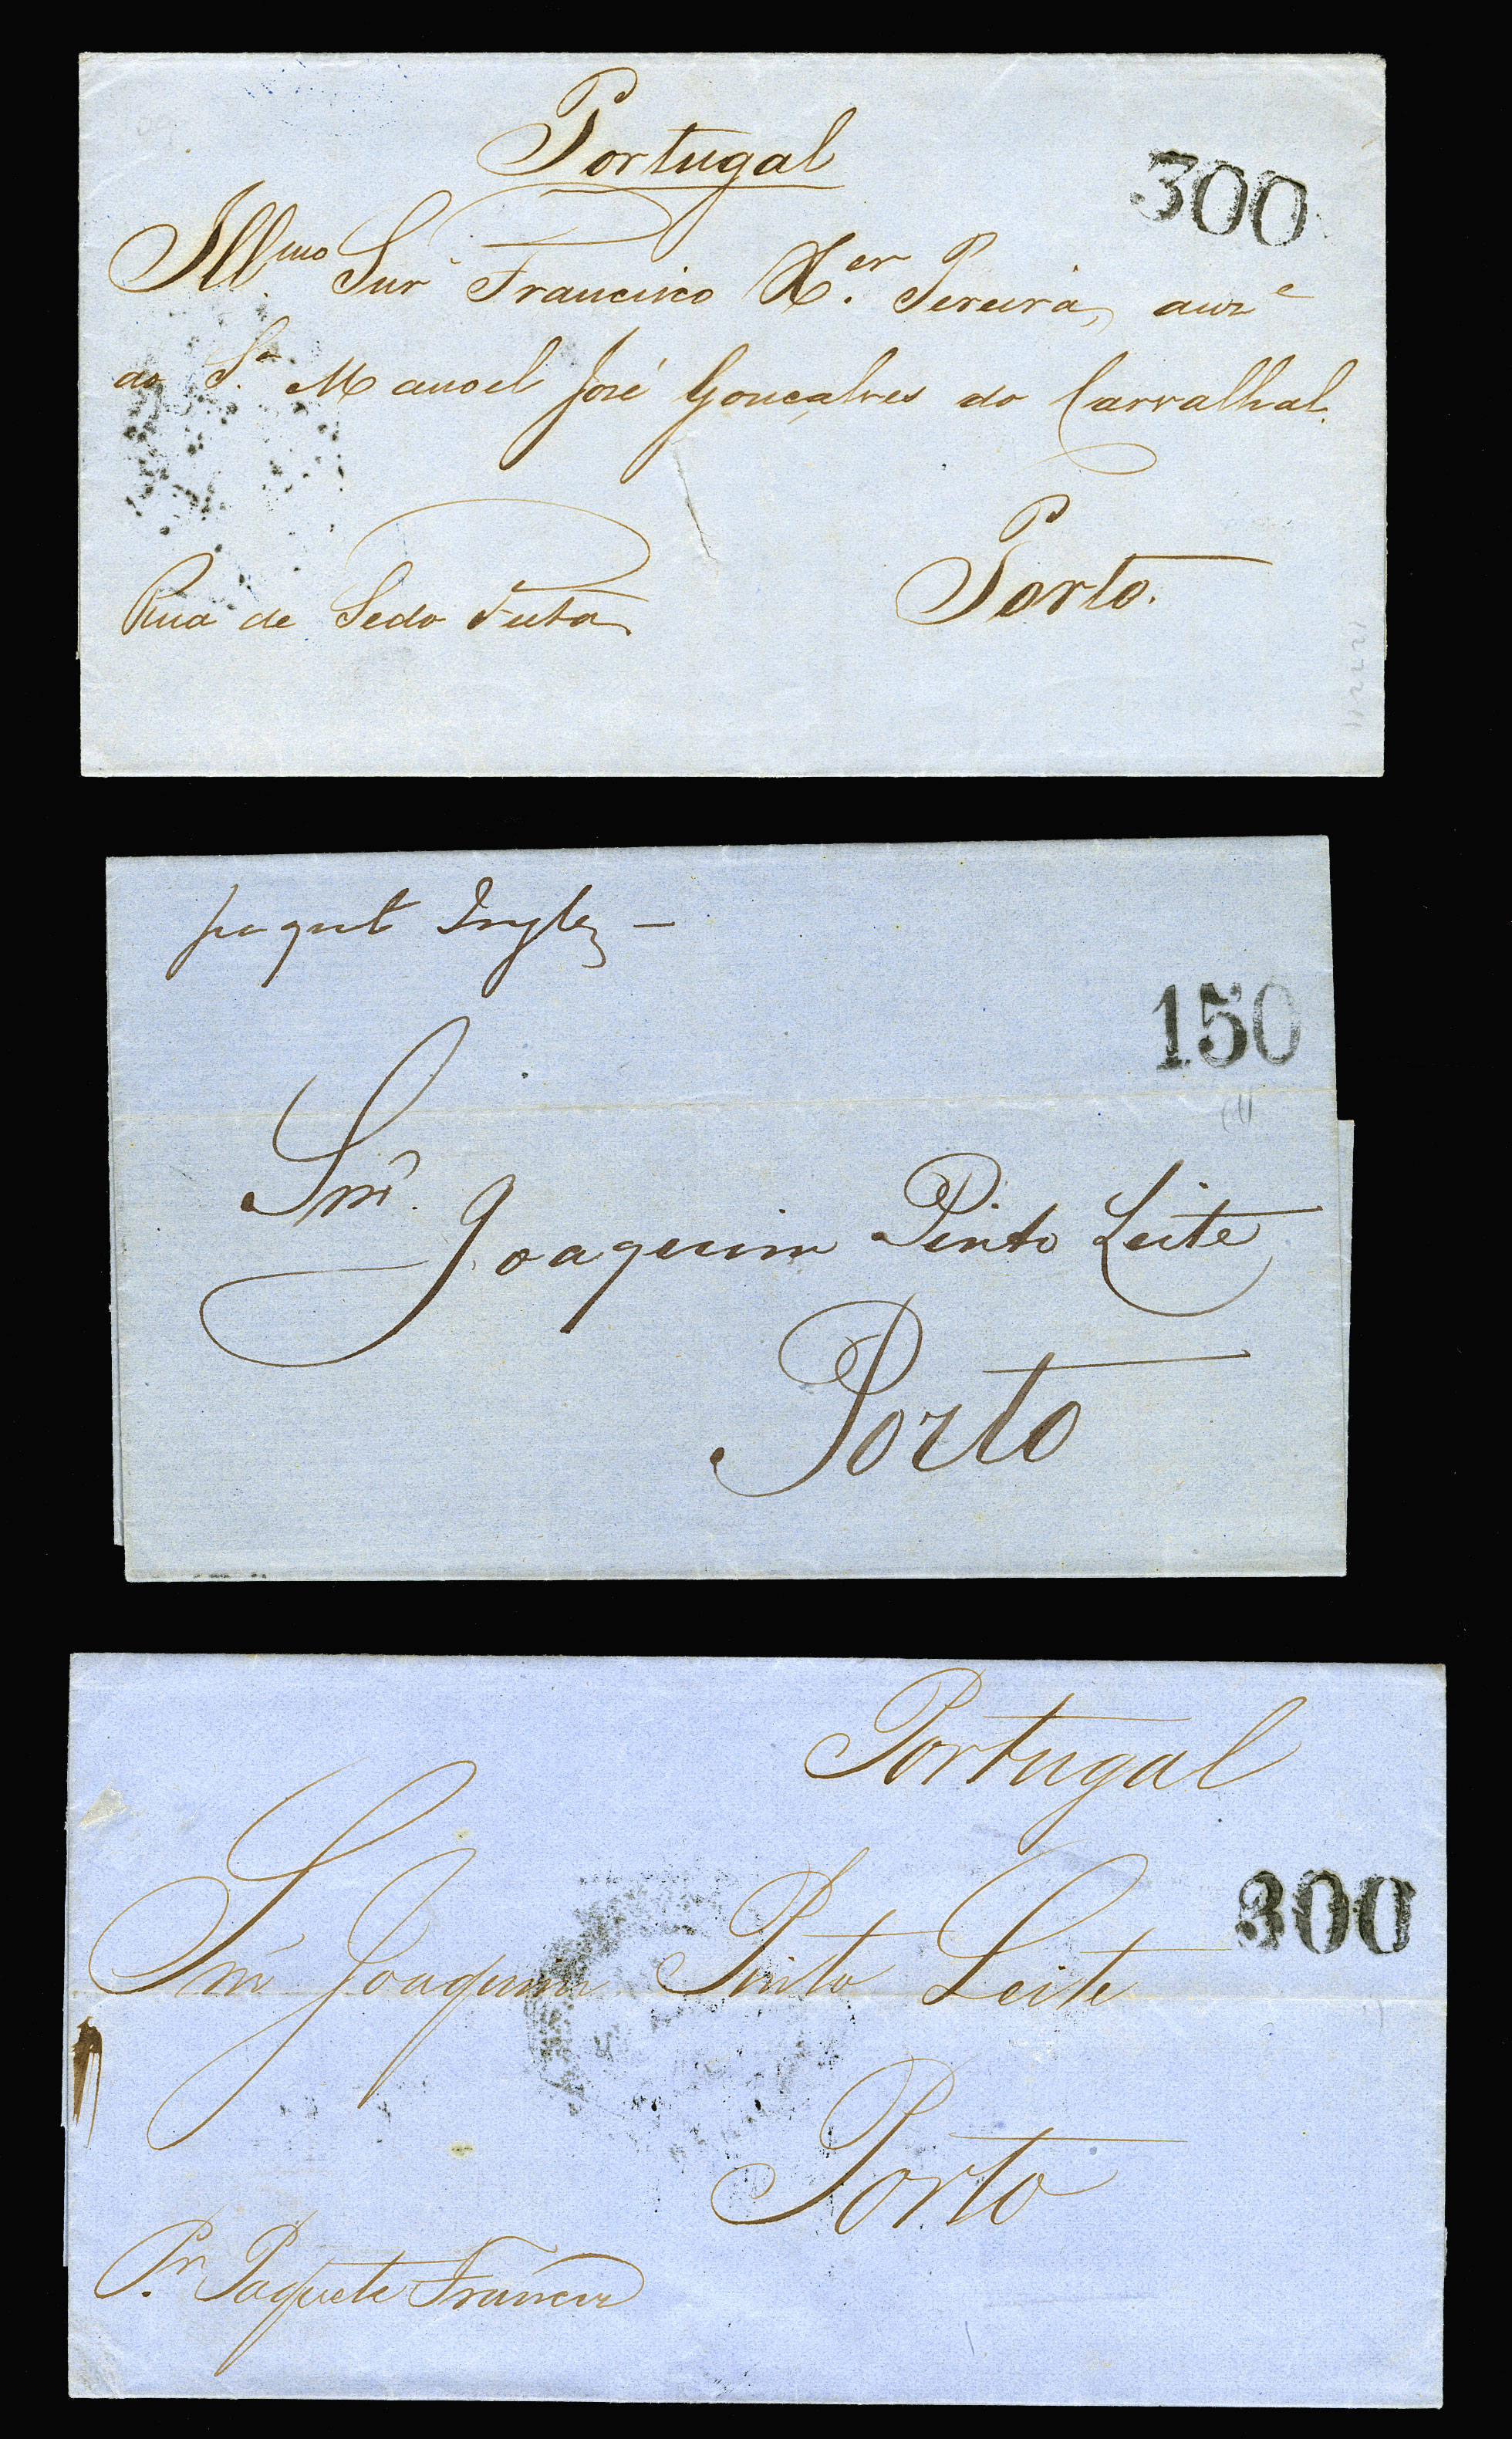 Portugal
300
Illmo Snr Francisco Xer Pereira, auze
do Sr Manoel José Gonçalves do Carvalhal.
Rua de Sedo Feita
Porto.
paquete Inglez —
150
Snr. Joaquim Pinto Leite
Porto
Portugal
300
Snr Joaquim Pinto Leite
Porto
Pr Paquete Francez